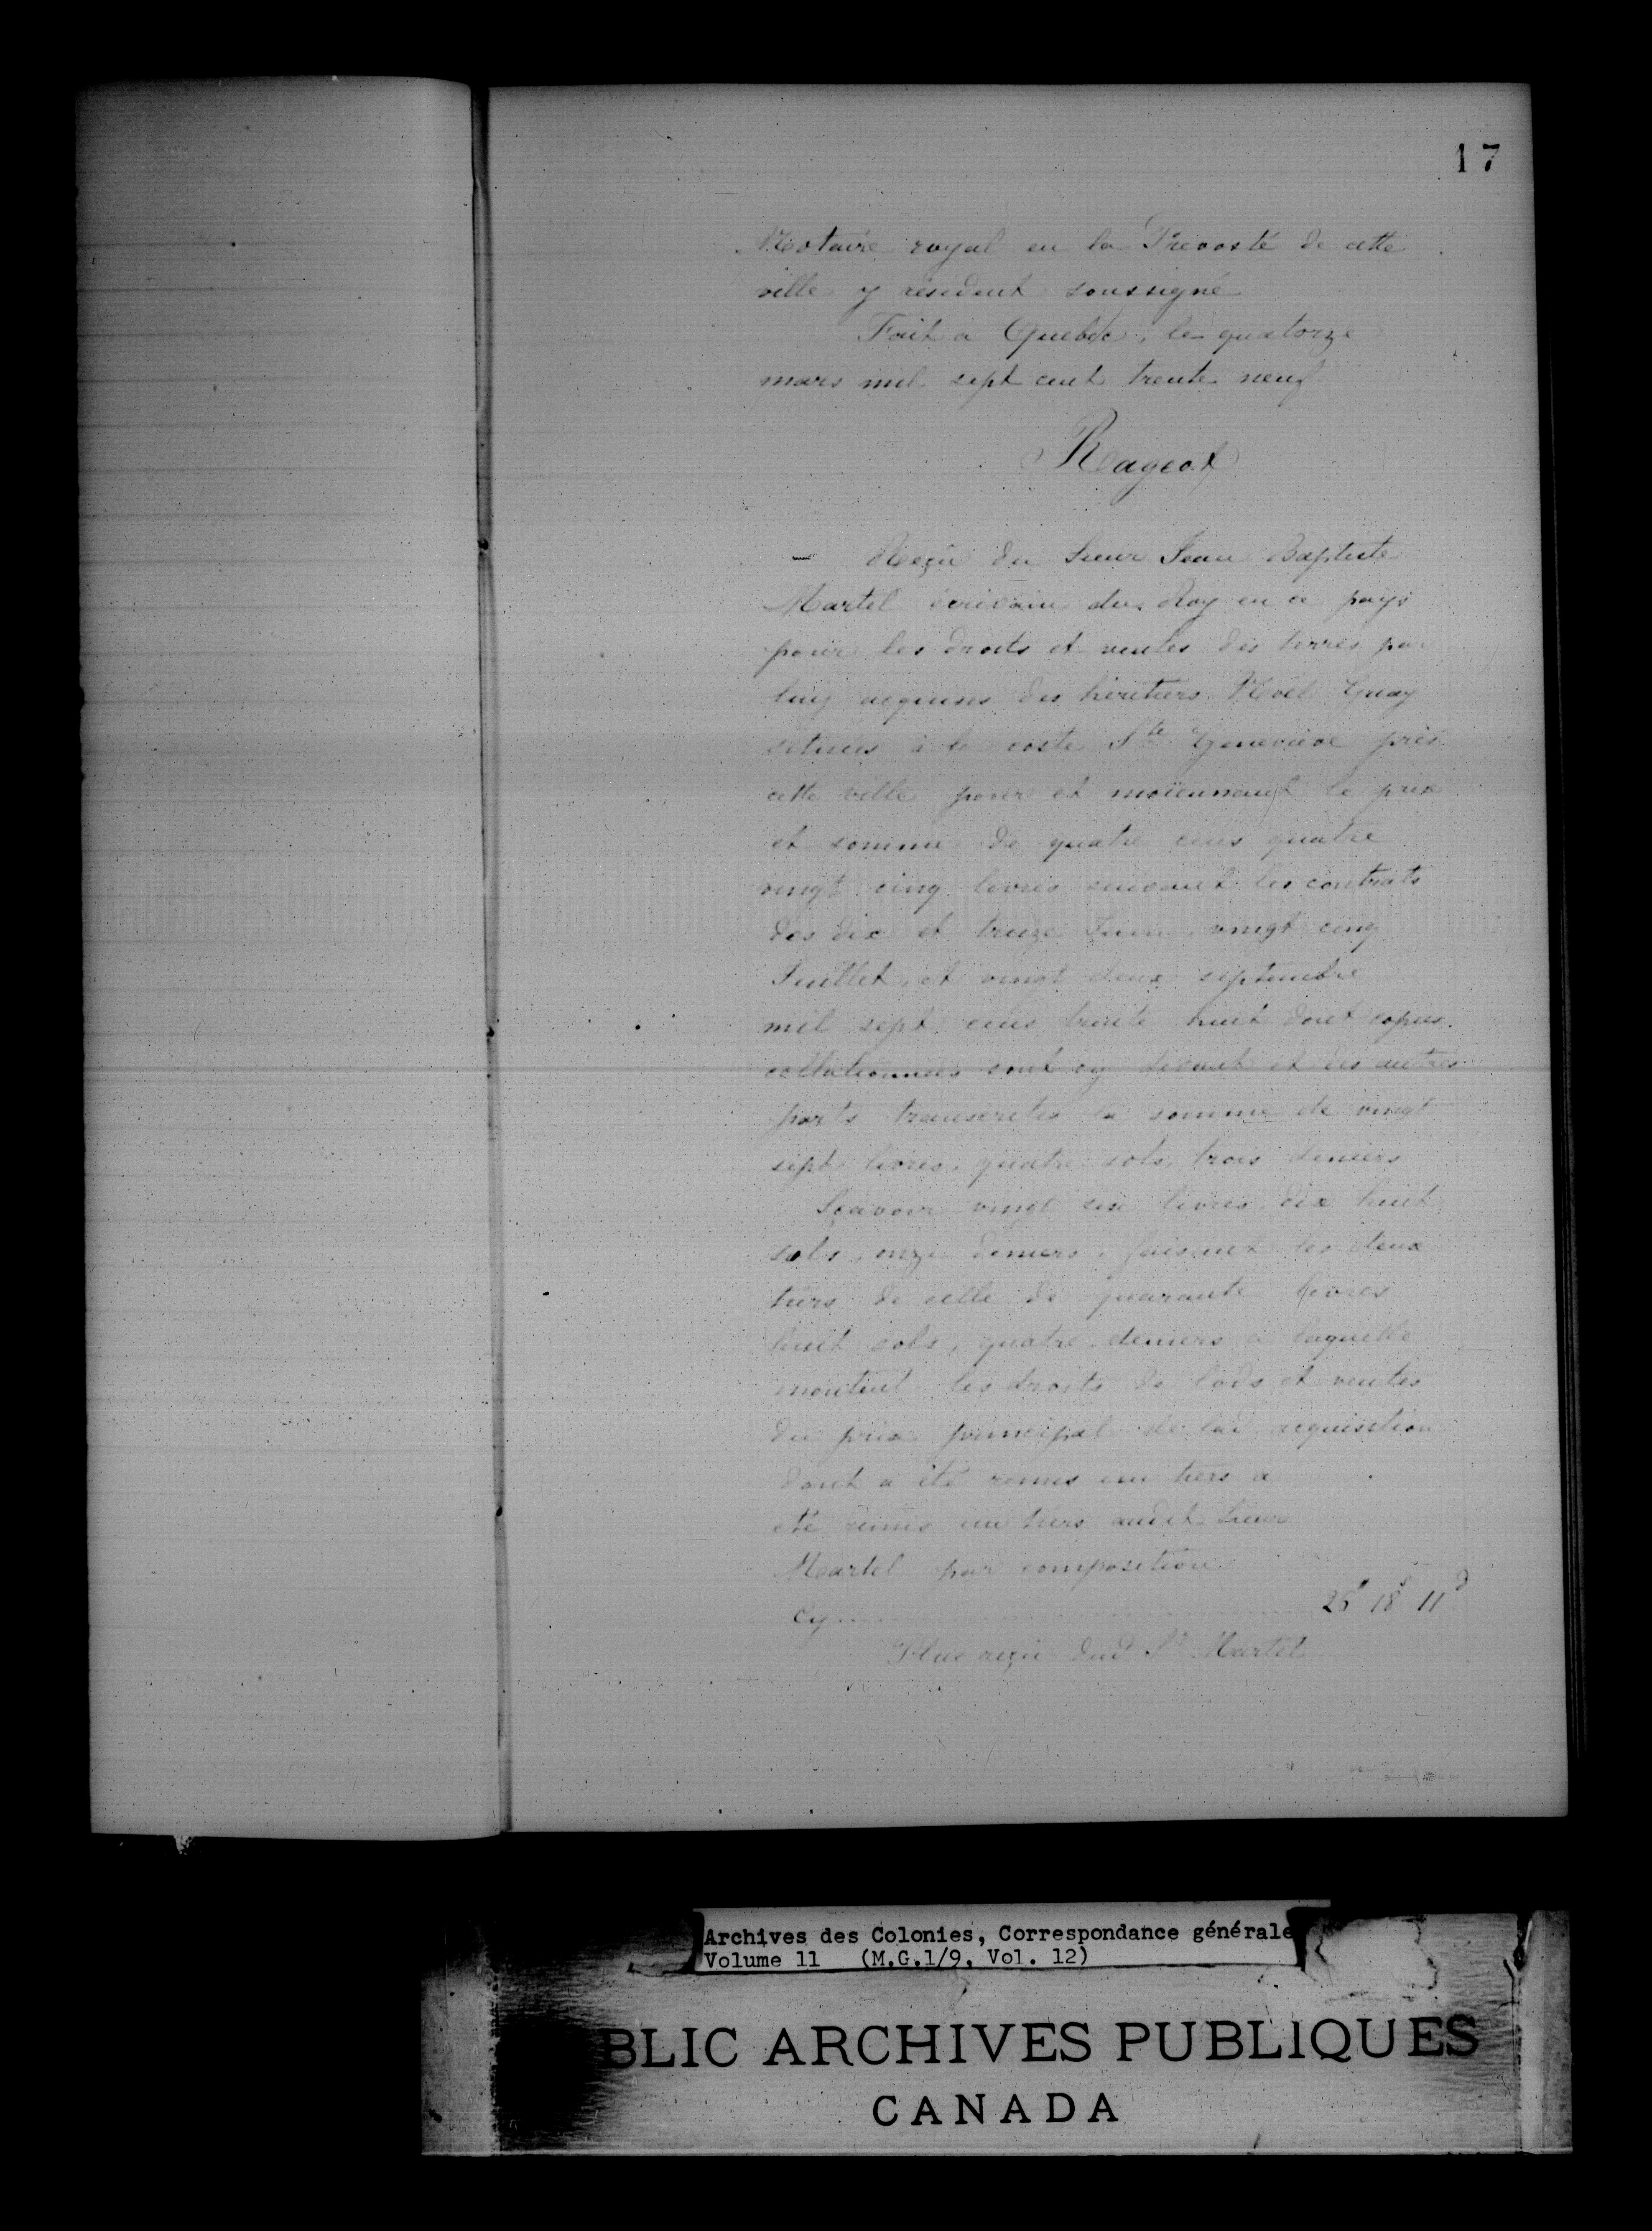 17
Notaire royal en la Prevosté de cette
ville y résident soussigné
Fait a Quebec, le quatorze
mars mil sept cent trente neuf
Rageot
— Reçu du Sieur Jean Baptiste
Martel écrivain du Roy en ce pays
pour les droits et ventes des terres par
luy acquises des héritiers Noël Guay
situées à la coste Ste Geneviève près
cette ville pour et moïennant le prix
et somme de quatre cens quatre
vingt cinq livres suivant les contrats
des dix et treize Juin, vingt cinq
Juillet, et vingt deux septembre
mil sept cens trente huit dont copies
collationnées sont cy devant et des autres
parts transcrites la somme de vingt
sept livres, quatre sols, trois deniers
Sçavoir vingt six livres, dix huit
sols, onze deniers, faisant les deux
tiers de celle de quarante livres
huit sols, quatre deniers à laquelle
montent les droits de lods et ventes
du prix principal de lad. acquisition
dont a été remis un tiers a
eté remis un tiers audit Sieur
Martel par composition
Cy .......... 26# 18s 11d
Plus reçu dud Sr Martel
Archives des Colonies, Correspondance générale
Volume 11 (M.G.1/9, Vol. 12)
BLIC ARCHIVES PUBLIQUES
CANADA